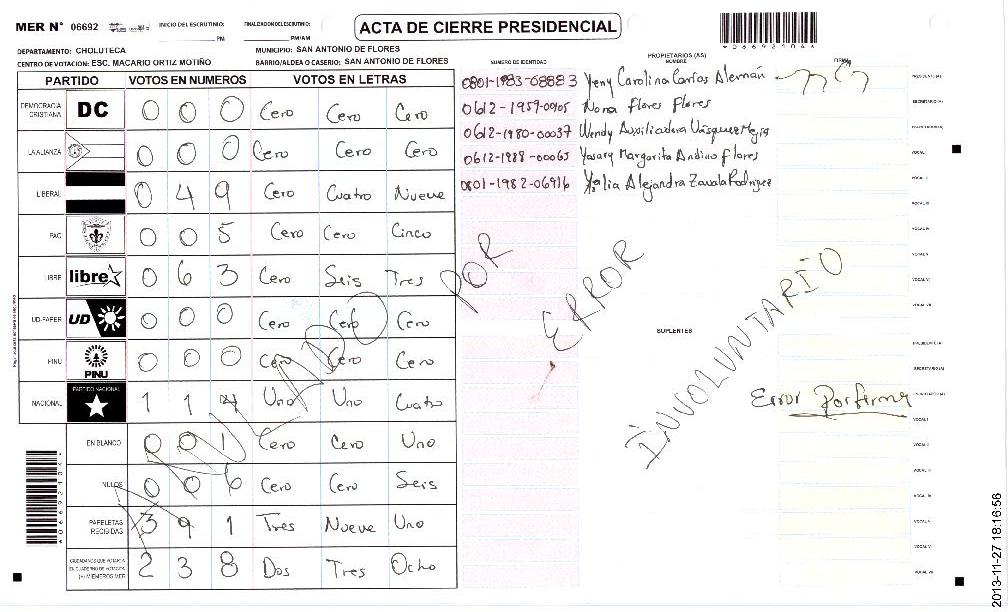 MER N° 06692
INICIO DEL ESCRUTINIO:
PM
FINALIZACION ESCRUTINIO:
PM/AM
ACTA DE CIERRE PRESIDENCIAL
DEPARTAMENTO: CHOLUTECA
MUNICIPIO: SAN ANTONIO DE FLORES
CENTRO DE VOTACION: ESC. MACARIO ORTIZ MOTIÑO
BARRIO/ALDEA O CASERIO: SAN ANTONIO DE FLORES
PARTIDO VOTOS EN NUMEROS VOTOS EN LETRAS
DEMOCRACIA CRISTIANA DC 0 0 0 Cero Cero Cero
LA ALIANZA 0 0 0 Cero Cero Cero
LIBERAL 0 4 9 Cero Cuatro Nueve
PAC 0 0 5 Cero Cero Cinco
LIBRE libre 0 6 3 Cero Seis Tres
UD-FAPER UD 0 0 0 Cero Cero Cero
PINU PINU 0 0 0 Cero Cero Cero
NACIONAL PARTIDO NACIONAL 1 1 4 Uno Uno Cuatro
EN BLANCO 0 0 1 Cero Cero Uno
NULOS 0 0 6 Cero Cero Seis
PAPELETAS RECIBIDAS 3 9 1 Tres Nueve Uno
CIUDADANOS QUE VOTARON EN CUADERNO DE VOTACION (+) MIEMBROS MER 2 3 8 Dos Tres Ocho
ANULADO POR ERROR INVOLUNTARIO
NUMERO DE IDENTIDAD
PROPIETARIOS (AS)
NOMBRE
FIRMA
0801-1983-08883 Yeny Carolina Carías Alemán
PRESIDENTE (A)
0612-1959-00105 Nora Flores Flores
SECRETARIO (A)
0612-1980-00037 Wendy Auxiliadora Vásquez Mejia
0612-1988-00065 Yosary Margarita Andino Flores
VOCAL I
0801-1982-06916 Yalia Alejandra Zavala Rodriguez
VOCAL II
VOCAL III
VOCAL IV
VOCAL V
VOCAL VI
VOCAL VII
SUPLENTES
PRESIDENTE (A)
SECRETARIO (A)
Error Por firma
VOCAL I
VOCAL II
VOCAL III
VOCAL IV
VOCAL V
VOCAL VI
VOCAL VII
2013-11-27 18:16:56